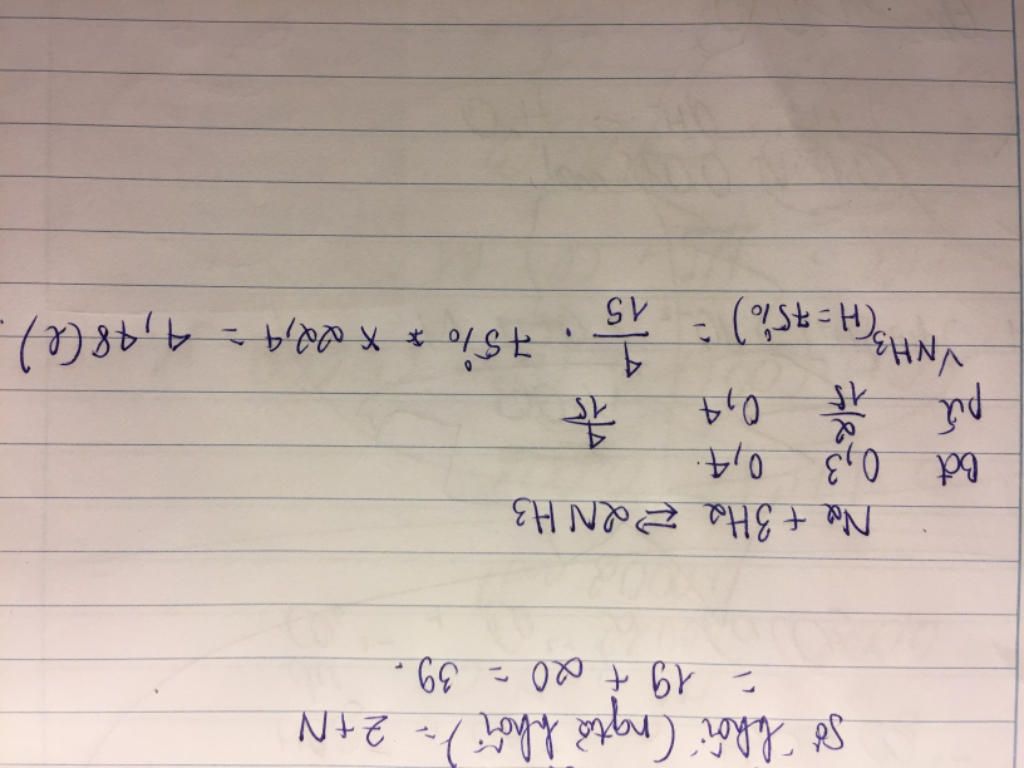 Số khối (ngtử khối) = Z + N
= 19 + 20 = 39.
N2 + 3H2 ⇄ 2NH3
bđ 0,3 0,4
pứ 2/15 0,4 4/15
VNH3 (H = 75%) = 4/15 . 75% * x 22,4 = 4,48 (l).